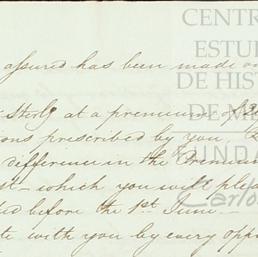 CENTR
ESTU
DE HIST
DE M
FUND
Carlo
assured has been made on
Sterlg at a premium of
ions prescribed by you
difference in the Premium
st - which you will plea
ted before the 1st June -
te with you by every oppo